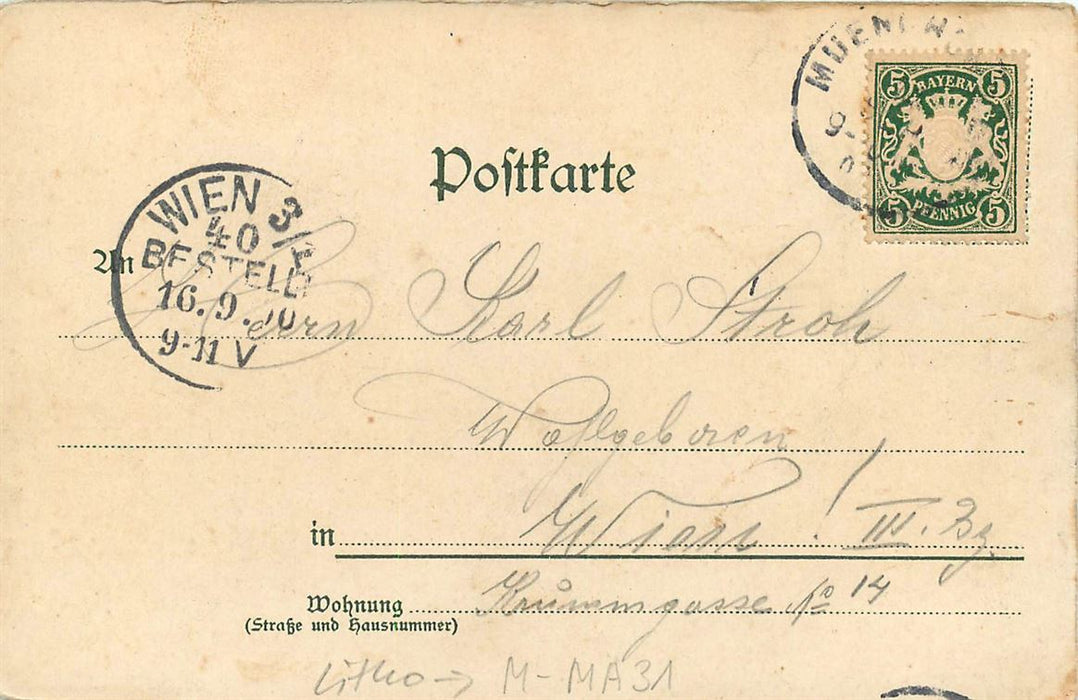 MUEN
5 BAYERN 5
5 PFENNIG 5
Postkarte
WIEN 3/
40
BESTELLT
16.9.00
9-11 V
An Herrn Karl Stroh
Wohlgeboren
in Wien! III. Bz
Wohnung Krummgasse No 14
(Straße und Hausnummer)
Litho → M-MA31